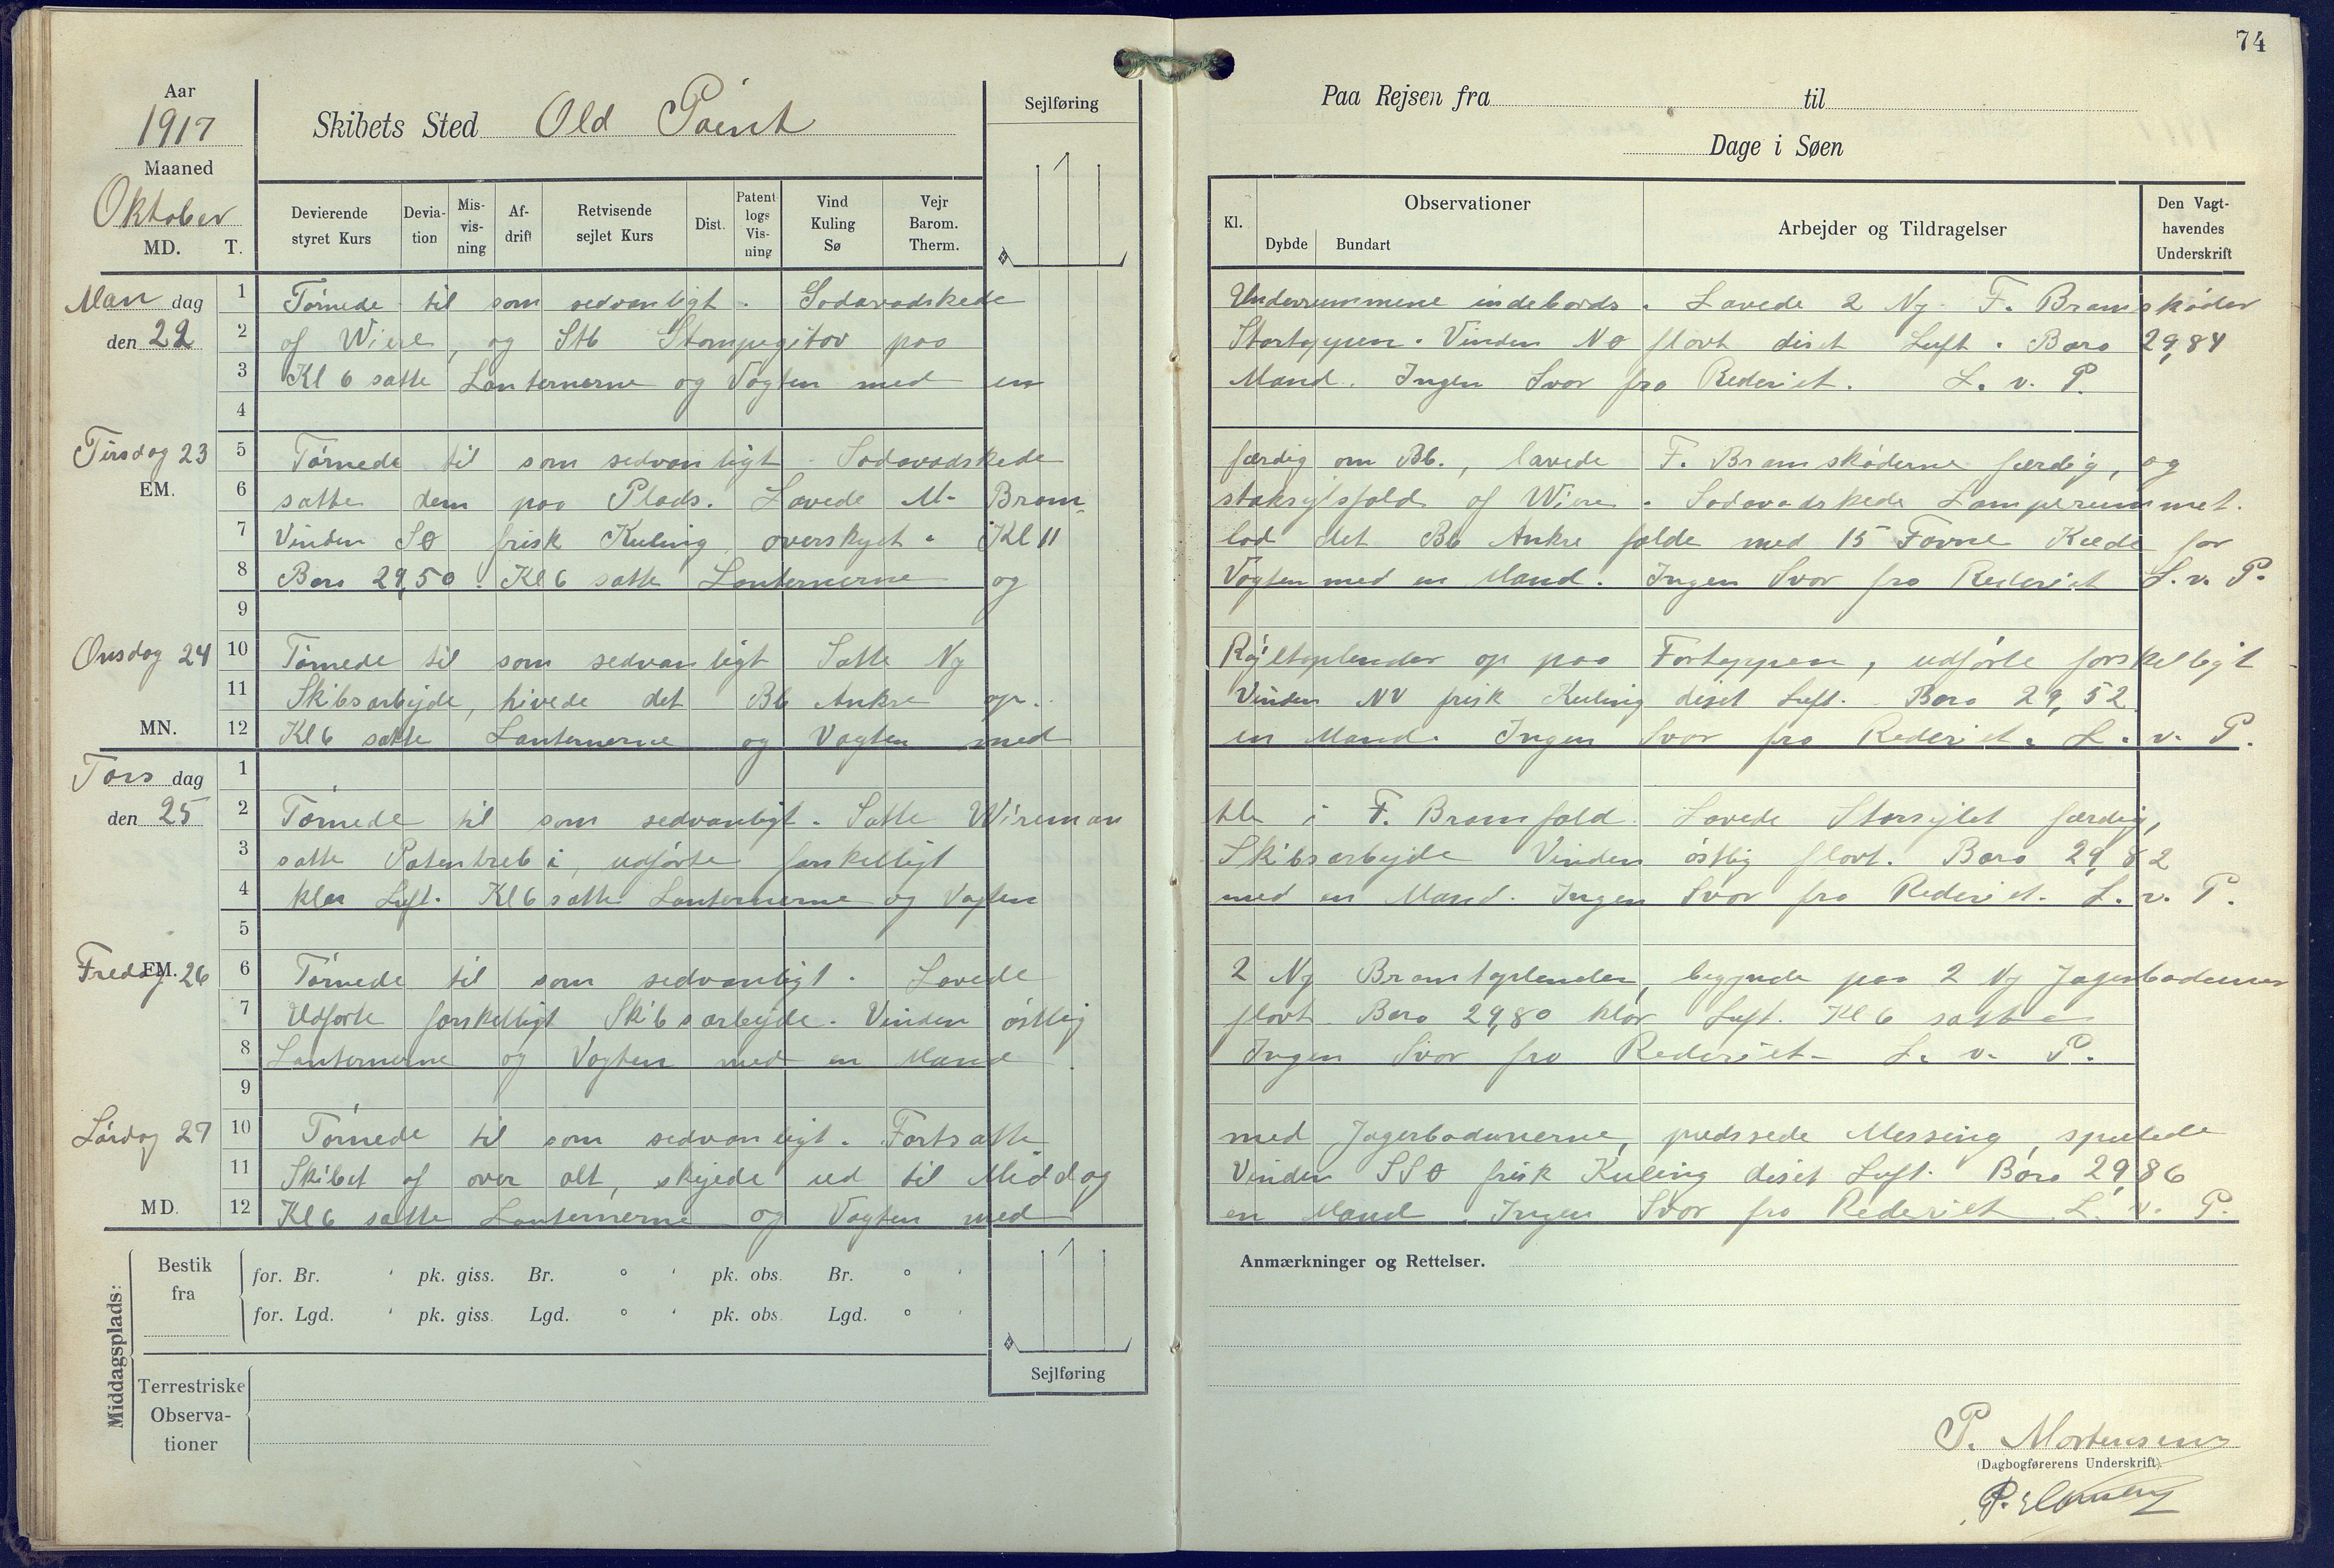 74
Aar
1917
Maaned
Oktober
MD. T.
Skibets Sted Old Point
Sejlføring
Paa Rejsen fra til
Dage i Søen
Devierende styret Kurs
Devia-tion
Mis-vis-ning
Af-drift
Retvisende sejlet Kurs
Dist.
Patent logs Vis-ning
Vind Kuling Sø
Vejr Barom. Therm.
Kl.
Observationer
Dybde Bundart
Arbejder og Tildragelser
Den Vagt-havendes Underskrift
Mandag 1 Tørnede til som sedvanligt. Sodavadskede Underrummene indebords. Lavede 2 Ny F. Bramskøder
den 22 2 af Wiere, og Stb Stompegitov paa Stortoppen. Vinden NO flovt diset Luft. Baro 29,84
3 Kl 6 satte Lanternerne og Vagten med en Mand. Ingen Svar fra Rederiet. L. v. P.
4
Tirsdag 23 5 Tørnede til som sedvanligt Sodavadskede færdig om Bb., lavede F. Bramskøderne færdig, og
EM. 6 satte dem paa Plads. Lavede M- Bram- staksejlsfald af Wiere. Sodavadskede Lamperummet.
7 Vinden SO frisk Kuling overskyet. Kl 11 lod det Bb Anker falde med 15 Favne Kæde for
8 Baro 29,50. Kl 6 satte Lanternerne og Vagten med en Mand. Ingen Svar fra Rederiet L. v. P.
9
Onsdag 24 10 Tørnede til som sedvanligt Satte Ny Røjltoplender op paa Fortoppen, udførte forskelligt
11 Skibsarbejde, hivede det Bb Anker op. Vinden NV frisk Kuling diset Luft. Baro 29,52
MN. 12 Kl 6 satte Lanternerne og Vagten med en Mand. Ingen Svar fra Rederiet. L. v. P.
Torsdag 1
den 25 2 Tørnede til som sedvanligt. Satte Wireman tle i F. Bramfald. Lavede Storsejlet færdig,
3 satte Patentreb i, udførte forskelligt Skibsarbejde Vinden østlig flovt. Baro 29,82
4 klar Luft. Kl 6 satte Lanternerne og Vagten med en Mand. Ingen Svar fra Rederiet. L. v. P.
5
Fredag 26 EM. 6 Tørnede til som sedvanligt. Lavede 2 Ny Bramtoplender, begynde paa 2 Ny
7 Udførte forskelligt Skibsarbejde. Vinden østlig flovt Baro 29,80 klar Luft. Kl 6 satte
8 Lanternerne og Vagten med en Mand Ingen Svar fra Rederiet- L. v. P.
9
Lørdag 27 10 Tørnede til som sedvanligt. Fortsatte med Jagerbadunerne, pudssede Messing, spulede
11 Skibet af over alt, skejede ud til Middag Vinden SSO frisk Kuling diset Luft. Baro 29,86
MD. 12 Kl 6 satte Lanternerne og Vagten med en Mand. Ingen Svar fra Rederiet L. v. P.
Middagsplads:
Bestik fra
for. Br. ' pk. giss. Br. ° ' pk. obs. Br. ° '
for. Lgd. ' pk. giss. Lgd. ° ' pk. obs. Lgd. ° '
Terrestriske Observa-tioner
Sejlføring
Anmærkninger og Rettelser.
P. Mortensen
(Dagbogførerens Underskrift).